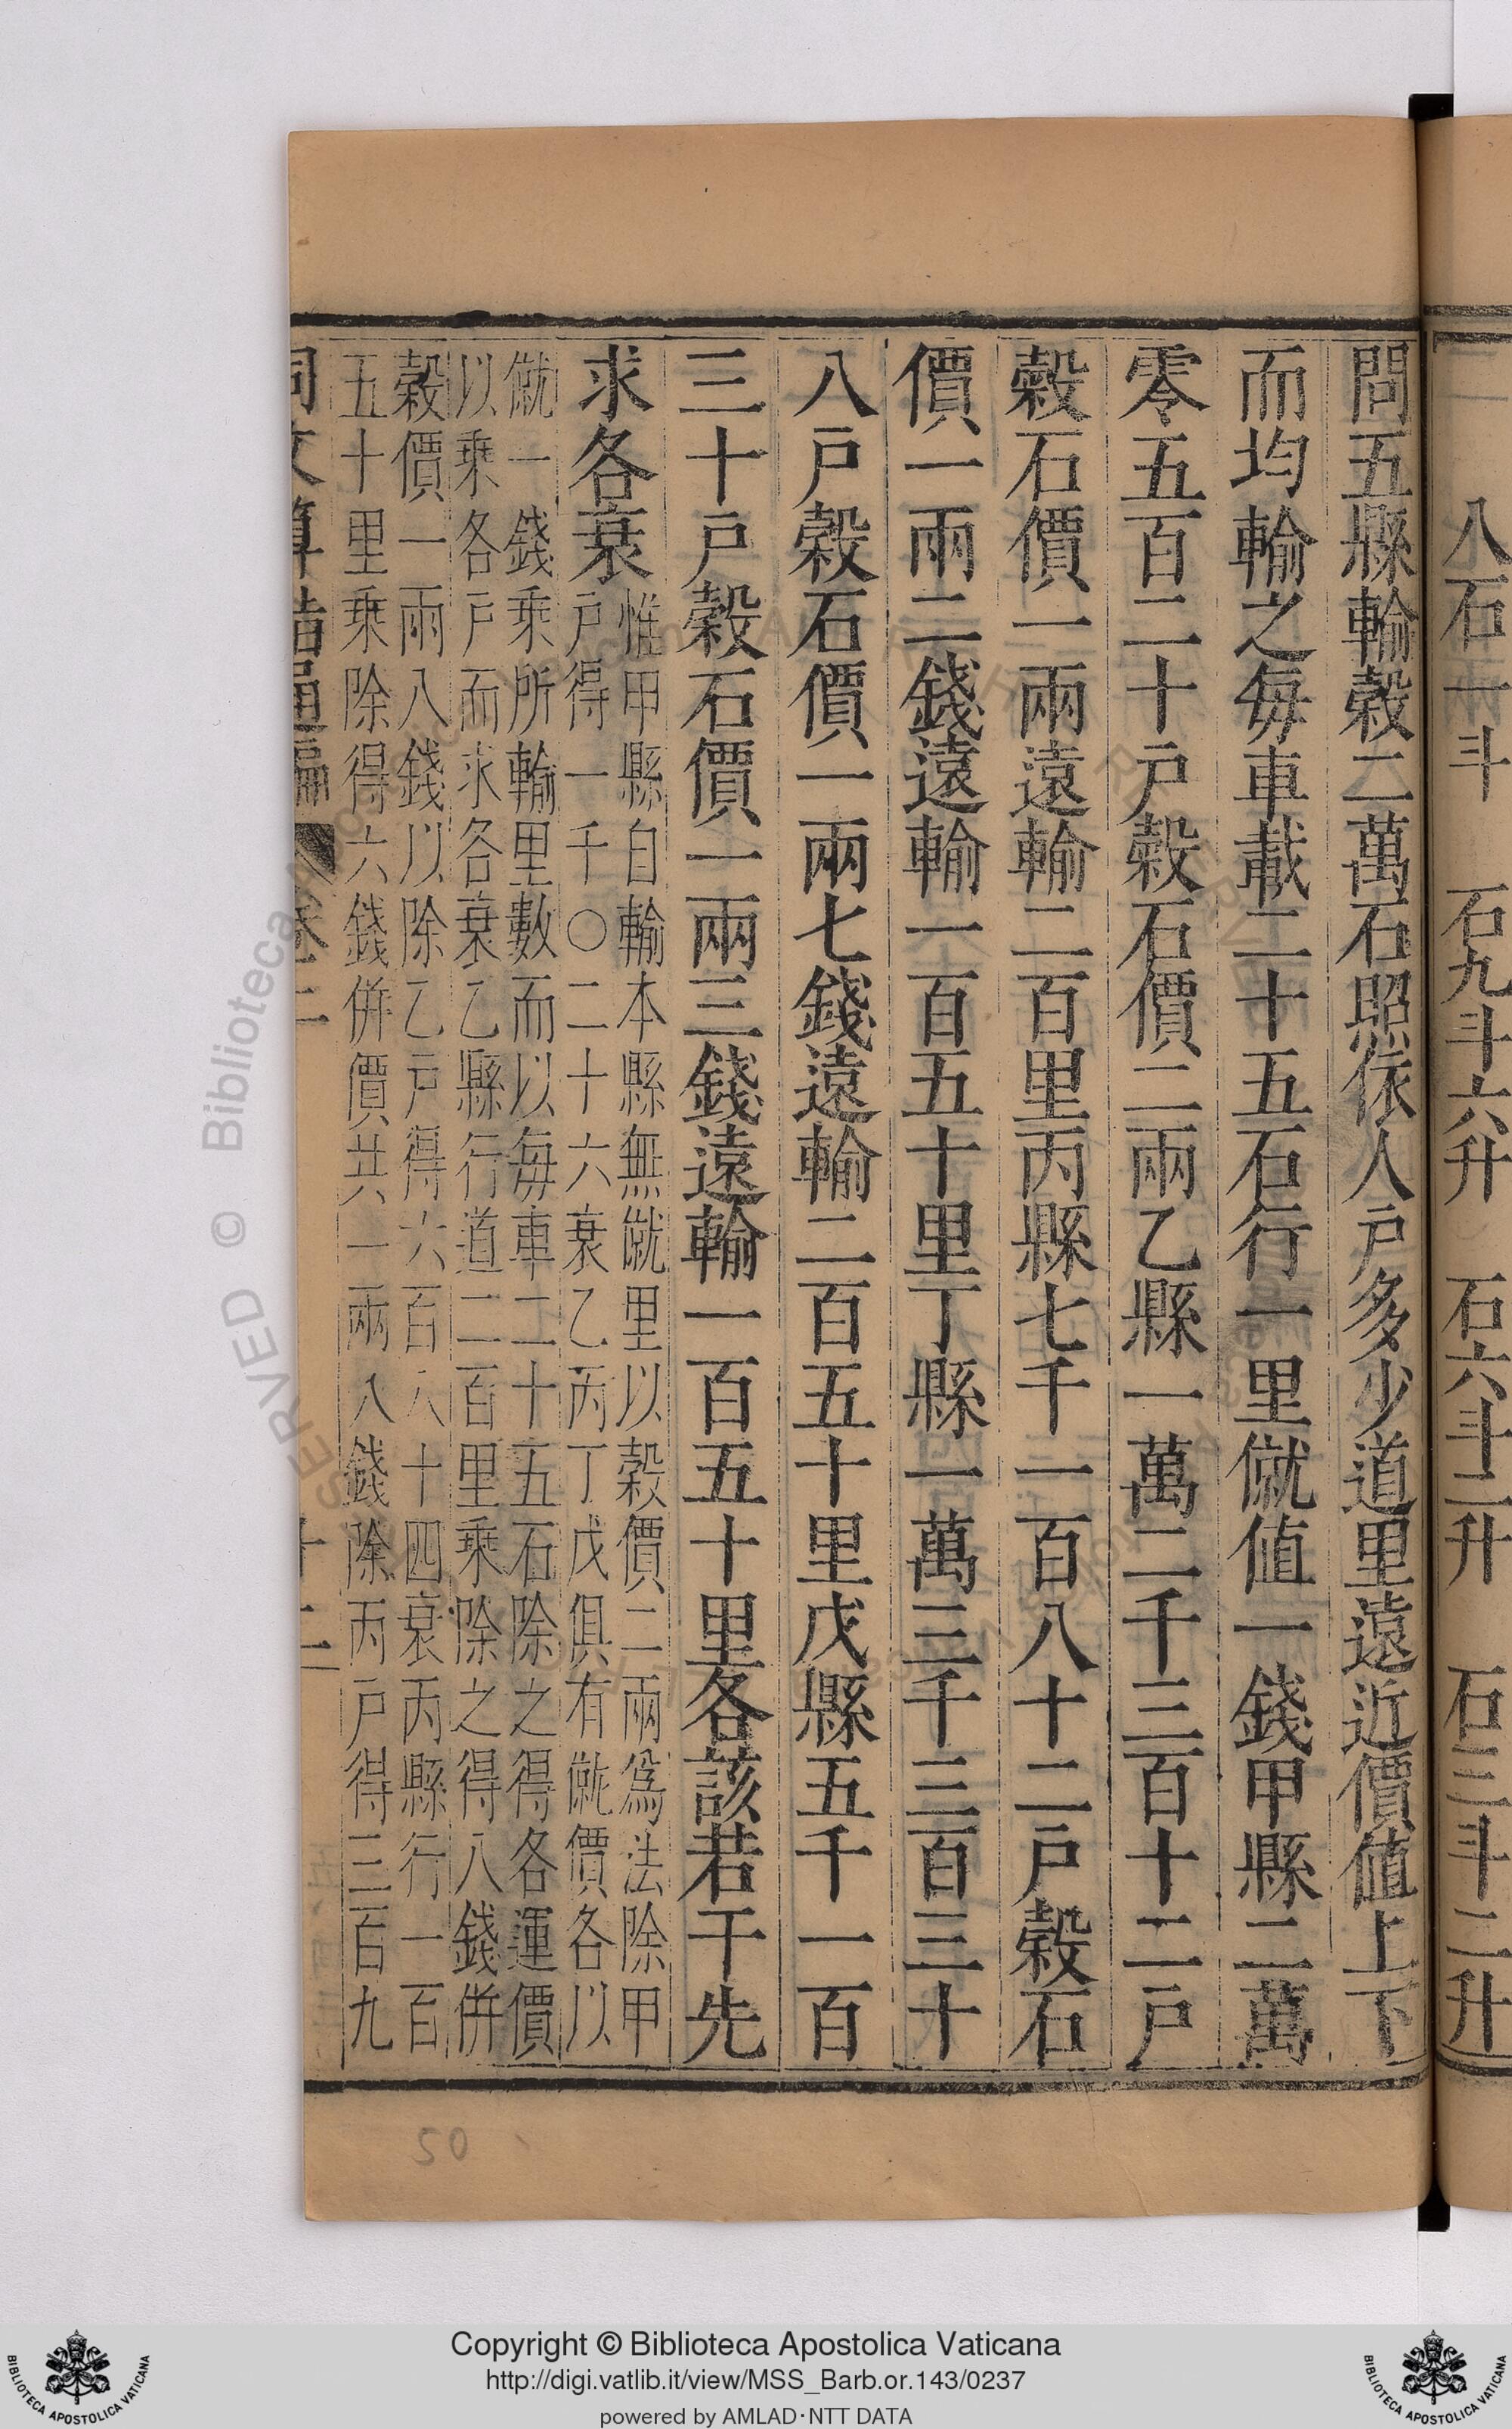 八石一斗　石九斗六升　石六斗二升　石三斗二升
問五縣輸穀二萬石照依人戶多少道里遠近價值上下
而均輸之每車載二十五石行一里僦值一錢甲縣二萬
零五百二十戶穀石價二兩乙縣一萬二千三百十二戶
穀石價一兩遠輸二百里丙縣七千一百八十二戶穀石
價一兩二錢遠輸一百五十里丁縣一萬三千三百三十
八戶穀石價一兩七錢遠輸二百五十里戊縣五千一百
三十戶穀石價一兩三錢遠輸一百五十里各該若干先
求各衰
惟甲縣自輸本縣無僦里以穀價二兩爲法除甲
戶得一千〇二十六衰乙丙丁戊俱有僦價各以
僦一錢乘所輸里數而以每車二十五石除之得各運價
以乘各戶而求各衰乙縣行道二百里乘除之得八錢併
穀價一兩八錢以除乙戶得六百八十四衰丙縣行一百
五十里乘除得六錢併價共一兩八錢除丙戶得三百九
同文算指通編　卷二　十二
50
RESERVED © Biblioteca Apostolica Vaticana
BIBLIOTECA APOSTOLICA VATICANA
Copyright © Biblioteca Apostolica Vaticana
http://digi.vatlib.it/view/MSS_Barb.or.143/0237
powered by AMLAD·NTT DATA
BIBLIOTECA APOSTOLICA VATICANA